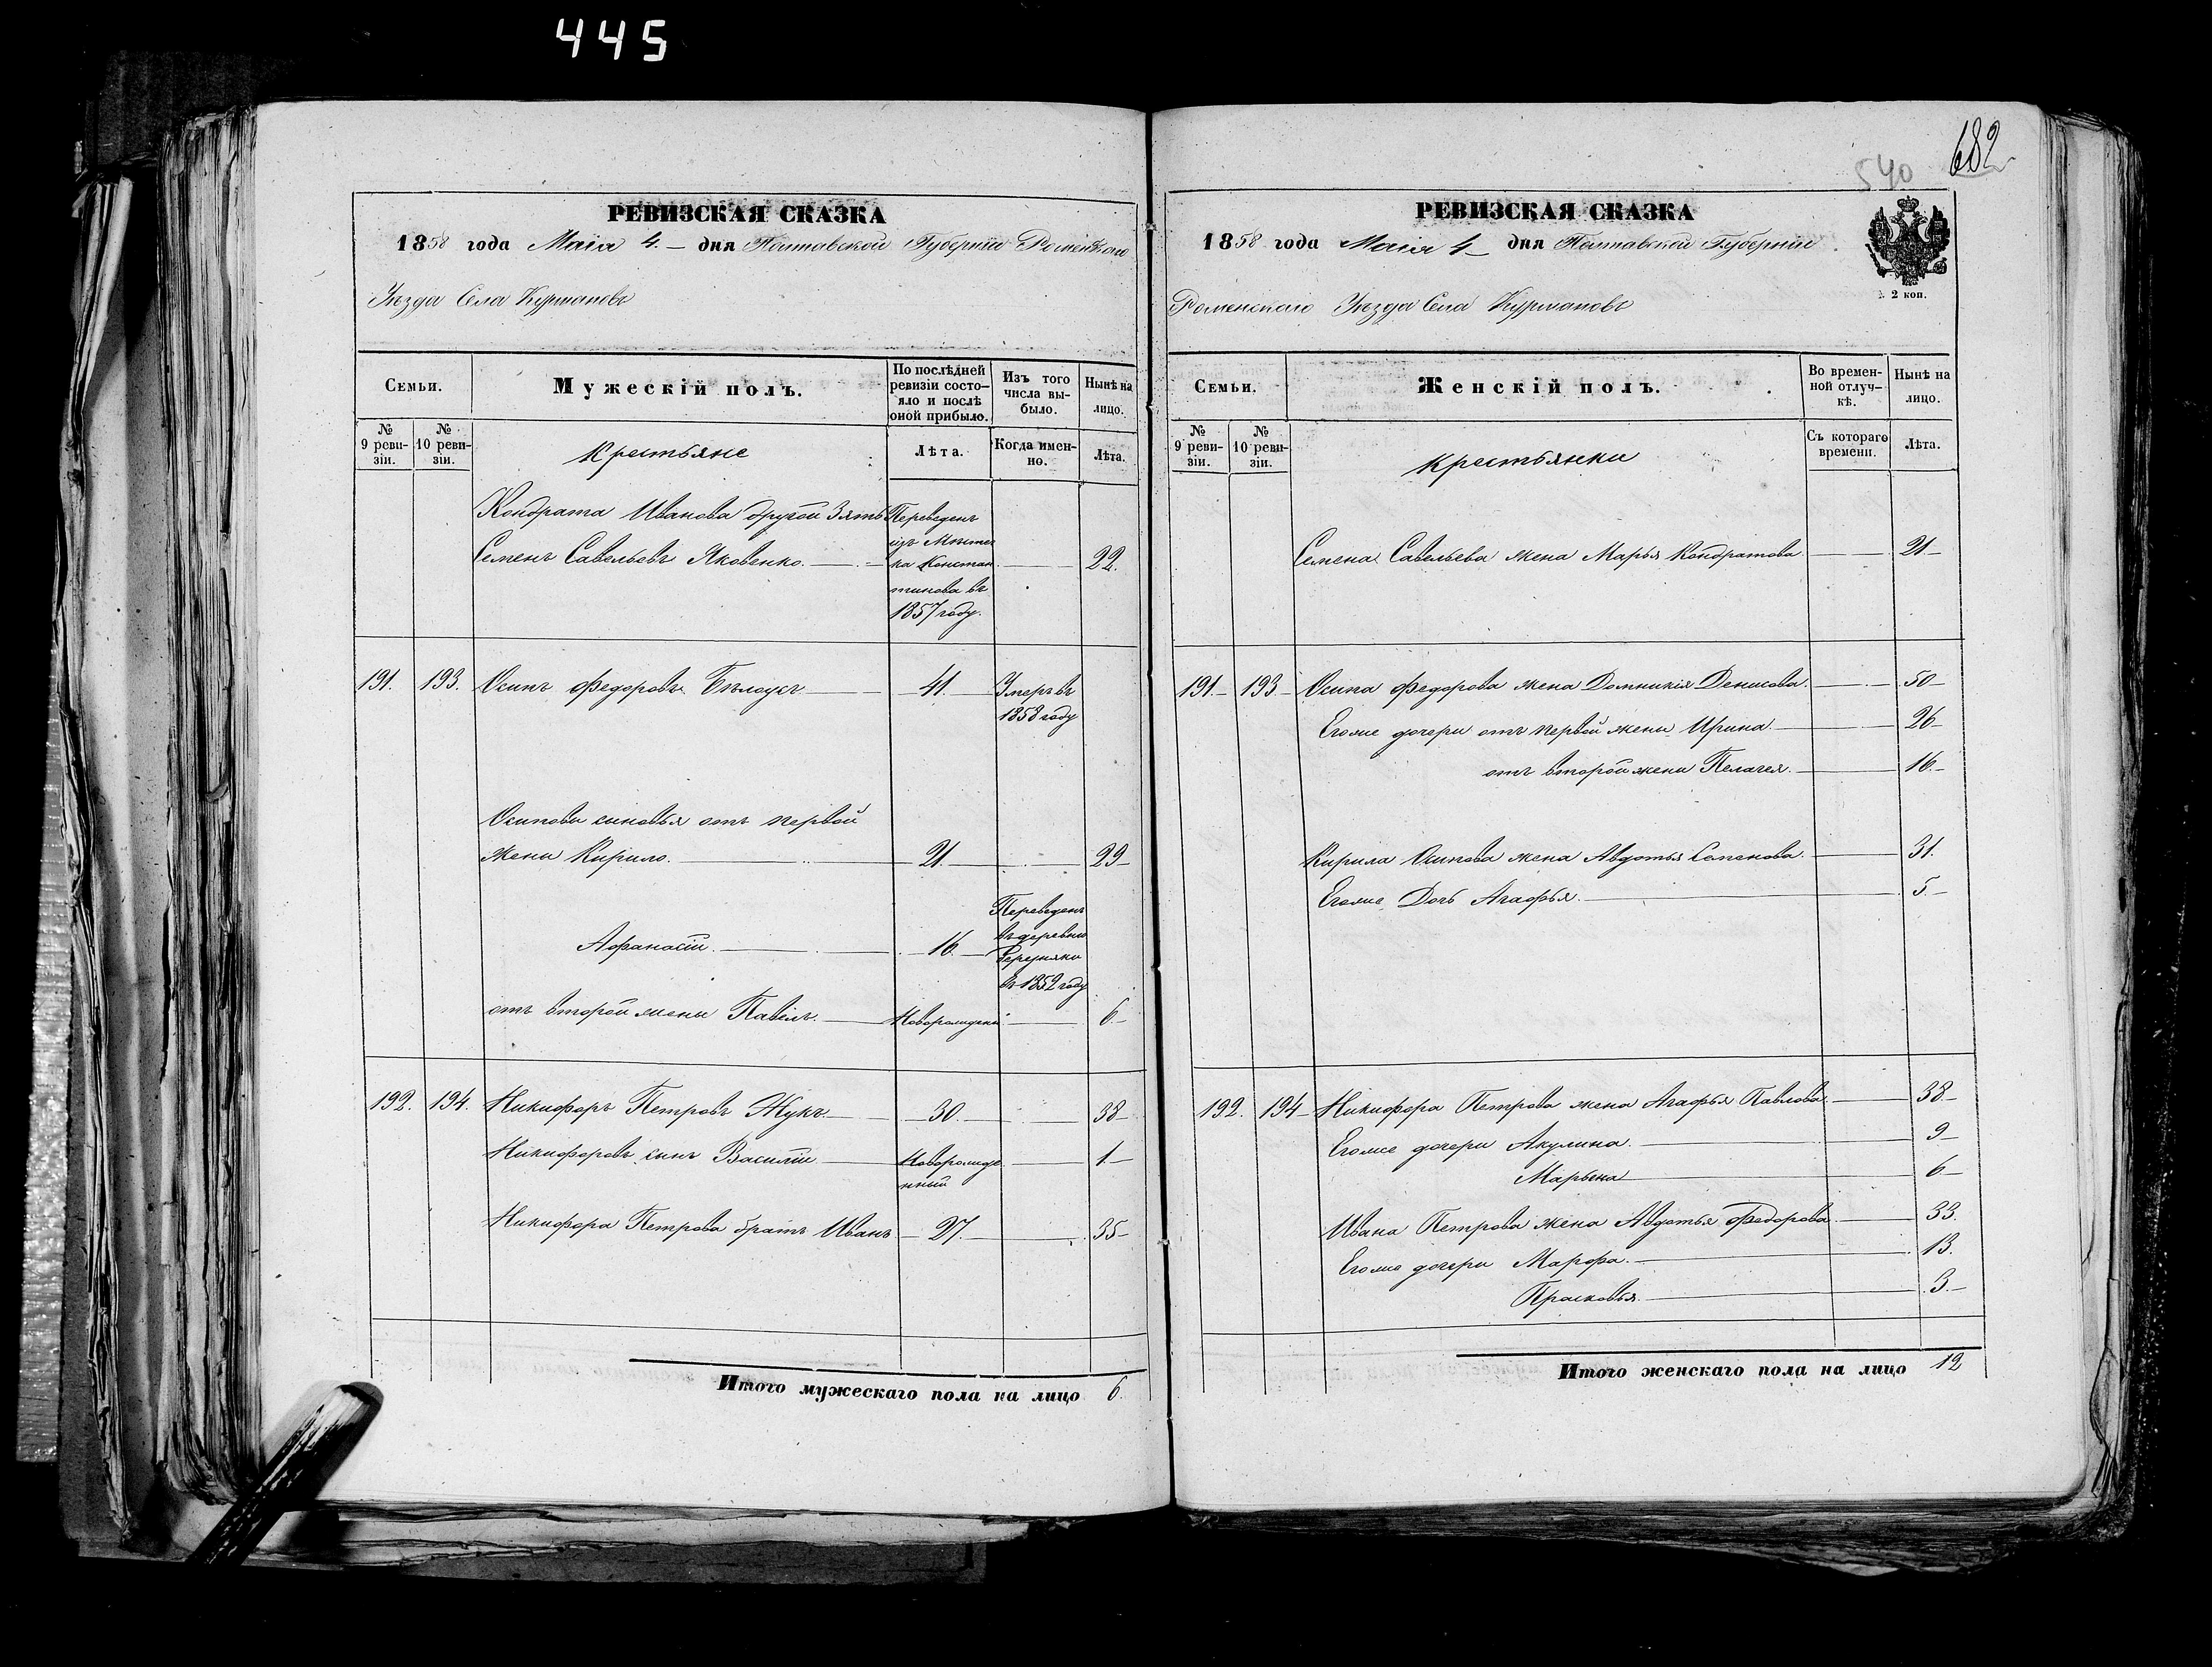 445
682
540
РЕВИЗСКАЯ СКАЗКА
1858 года Маія 4. дня Полтавской Губерніи Роменского
Уѣзда Села Курмановъ
Семьи.
Мужескій полъ.
По послѣдней ревизіи состо-
яло и послѣ
оной прибыло.
Изъ того
числа вы-
было.
Нынѣ на
лицо.
№
9 реви-
зіи.
№
10 реви-
зіи.
Крестьяне
Лѣта.
Когда имен-
но.
Лѣта.
Кондрата Иванова другой Зять
Семенъ Савельевъ Яковенко. 22.
Переведенъ
изъ Мѣстеч
ка Констан
тинова въ
1857 году.
191. 193. Осипъ Федоровъ Бѣлоусъ 41. Умеръ въ
1858 году
Осиповы синовья отъ первой
жени Кирило. 21. 29
Афанасій. 16. Переведенъ
въ деревню
въ 1852 году
отъ второй жены Павелъ. Новорожденый 6.
192. 194. Никифоръ Петровъ Жукъ 30. 38
Никифоровъ сынъ Василій Новорожде
нный 1.
Никифора Петрова братъ Иванъ 27. 35
Итого мужескаго пола на лицо 6.
РЕВИЗСКАЯ СКАЗКА
1858 года Маія 4 дня Полтавской Губерніи
Роменскаго Уѣзда Села Курмановъ
2 коп.
Семьи.
Женскій полъ.
Во времен-
ной отлуч-
кѣ.
Нынѣ на
лицо.
№
9 реви-
зіи.
№
10 реви-
зіи.
крестьянки
Съ котораго
времени.
Лѣта.
Семена Савельева жена Марья Кондратова 21
191 193 Осипа Федорова жена Домникія Денисова. 50
Егоже дочери отъ первой жены Ирина. 26
отъ второй жены Пелагея. 16.
Кирила Осипова жена Авдотья Семенова. 31.
Егоже Дочь Агафья. 5.
192. 194 Никифора Петрова жена Агафья Павлова. 38
Егоже дочери Акулина. 9
Марьяна 6
Ивана Петрова жена Авдотья Федорова. 33.
Егоже дочери Марфа. 13.
Прасковья. 3.
Итого женскаго пола на лицо 12